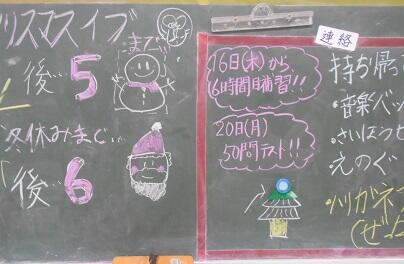 リスマスイブ
まで…
後…5
冬休みまで…
後…6
16日(木)から
6時間目補習!!
20日(月)
50問テスト!!
連絡
持ち帰っ
・音楽バッ
・さいほうセ
・えのぐ